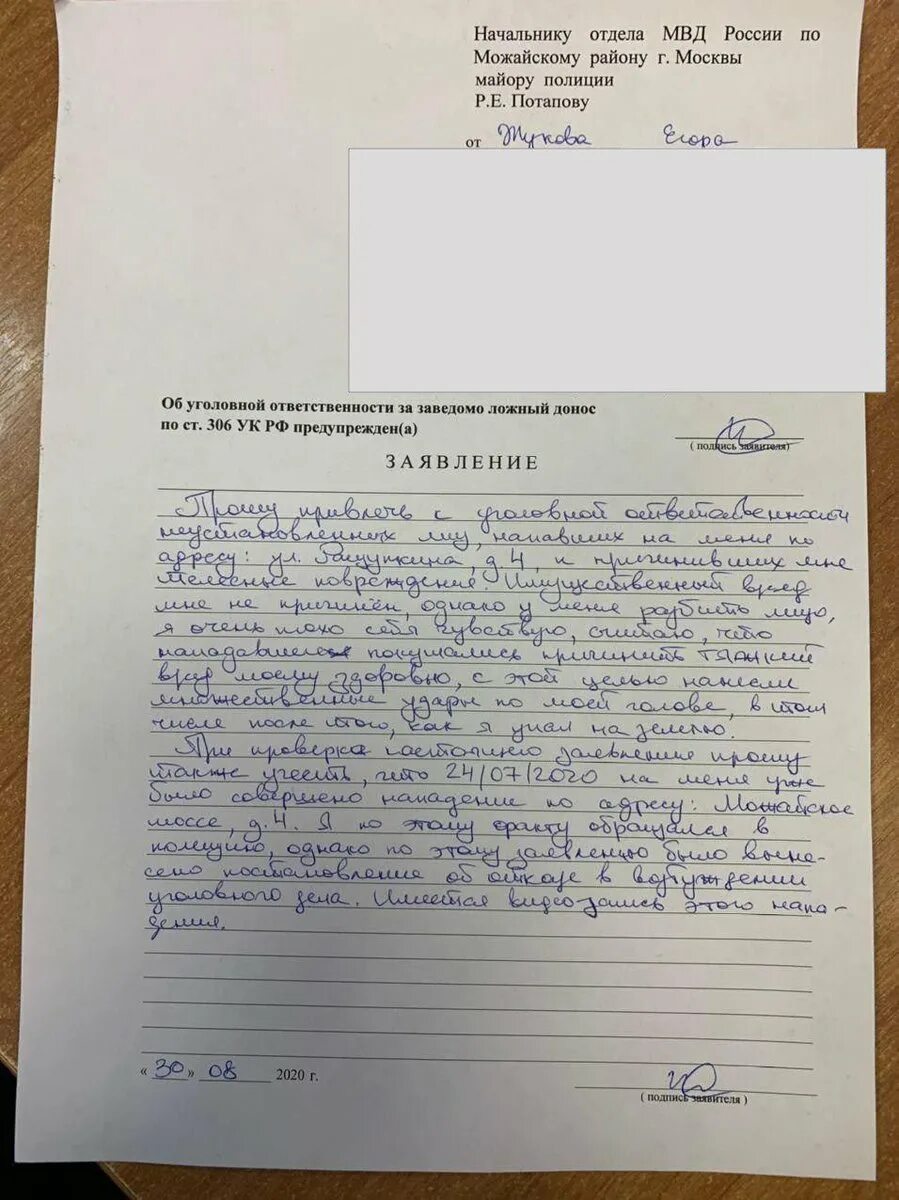 Начальнику отдела МВД России по
Можайскому району г. Москвы
майору полиции
Р.Е. Потапову
от Жукова Егора
Об уголовной ответственности за заведомо ложный донос
по ст. 306 УК РФ предупрежден(а)
( подпись заявителя)
ЗАЯВЛЕНИЕ
Прошу привлечь к уголовной ответственности
неустановленных лиц, напавших на меня по
адресу: ул. Ращупкина, д.4, и причинивших мне
телесные повреждения. Имущественный вред
мне не причинён, однако у меня разбито лицо,
я очень плохо себя чувствую, считаю, что
нападавшие покушались причинить тяжкий
вред моему здоровью, с этой целью нанесли
множественные удары по моей голове, в том
числе после того, как я упал на землю.
При проверке настоящего заявления прошу
также учесть, что 24/07/2020 на меня уже
было совершено нападение по адресу: Можайское
шоссе, д.4. Я по этому факту обращался в
полицию, однако по этому заявлению было выне-
сено постановление об отказе в возбуждении
уголовного дела. Имеется видеозапись этого напа-
дения.
« 30 » 08 2020 г.
( подпись заявителя )